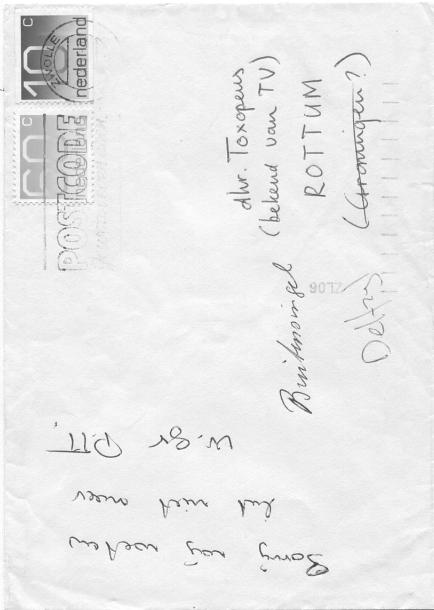 10 c
nederland
ZWOLLE
60 c
POSTCODE
dhr. Toxopeus
(bekend van TV)
ROTTUM
(Groningen?)
Buitensingel
Delfzijl
ZL06
Sorry wij weten
het niet meer
P.T.T.